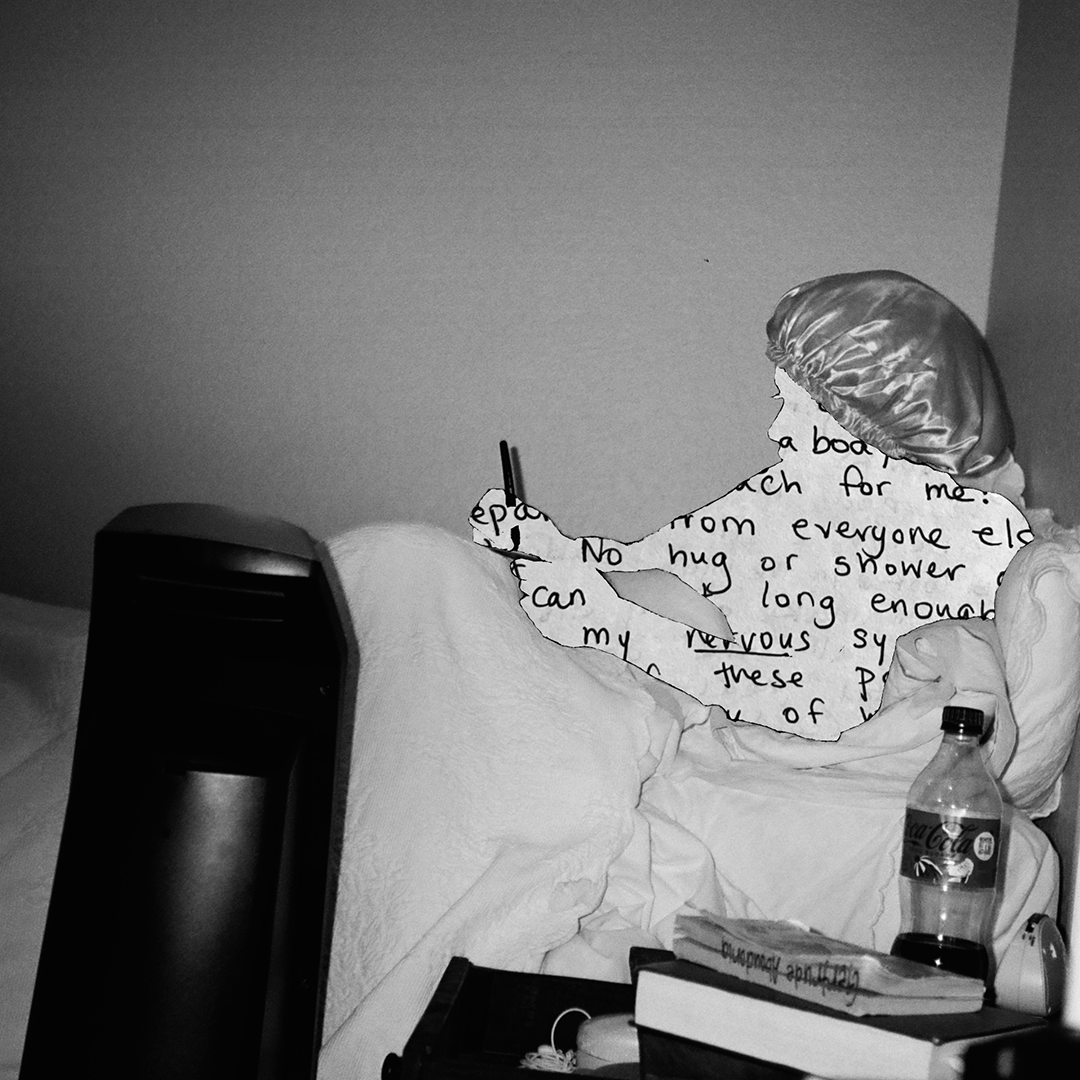 a body
ach for me:
from everyone els
epar
No hug or shower
can long enough
my nervous sy
these pa
of w
Coca-Cola
Gertrude Abundand